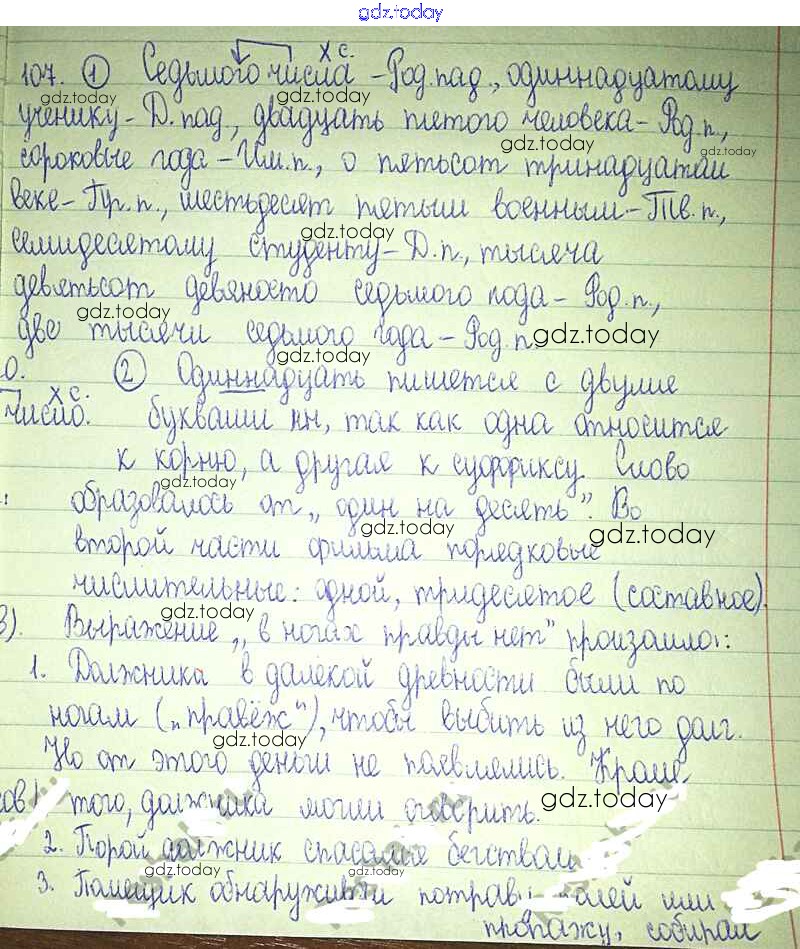 gdz.today
х с.
107. 1 Седьмого числа - Род.пад., одиннадцатому
gdz.today gdz.today
ученику - Д.пад., двадцать пятого человека - Род.п.,
gdz.today gdz.today
сороковые года - Им.п., о пятьсот тринадцатом
веке - Пр.п., шестьдесят пятым военным - Тв.п.,
gdz.today
семидесятому студенту - Д.п., тысяча
девятьсот девяносто седьмого года - Род.п.,
gdz.today
две тысячи седьмого года - Род.п.
gdz.today
gdz.today
О. 2 Одиннадцать пишется с двумя
х с.
число. буквами нн, так как одна относится
к корню, а другая к суффиксу. Слово
gdz.today
: образовалось от „один на десять". Во
gdz.today gdz.today
второй части фильма порядковые
числительные: одной, тридесятое (составное).
gdz.today
3). Выражение „в ногах правды нет" произошло:
1. Должника в далёкой древности били по
ногам („правёж"), чтобы выбить из него долг.
gdz.today
Но от этого деньги не появлялись. Кроме
того, должника могли оговорить.
gdz.today
2. Порой должник спасался бегством
3. Помещик обнаружив
пропажу, собирал